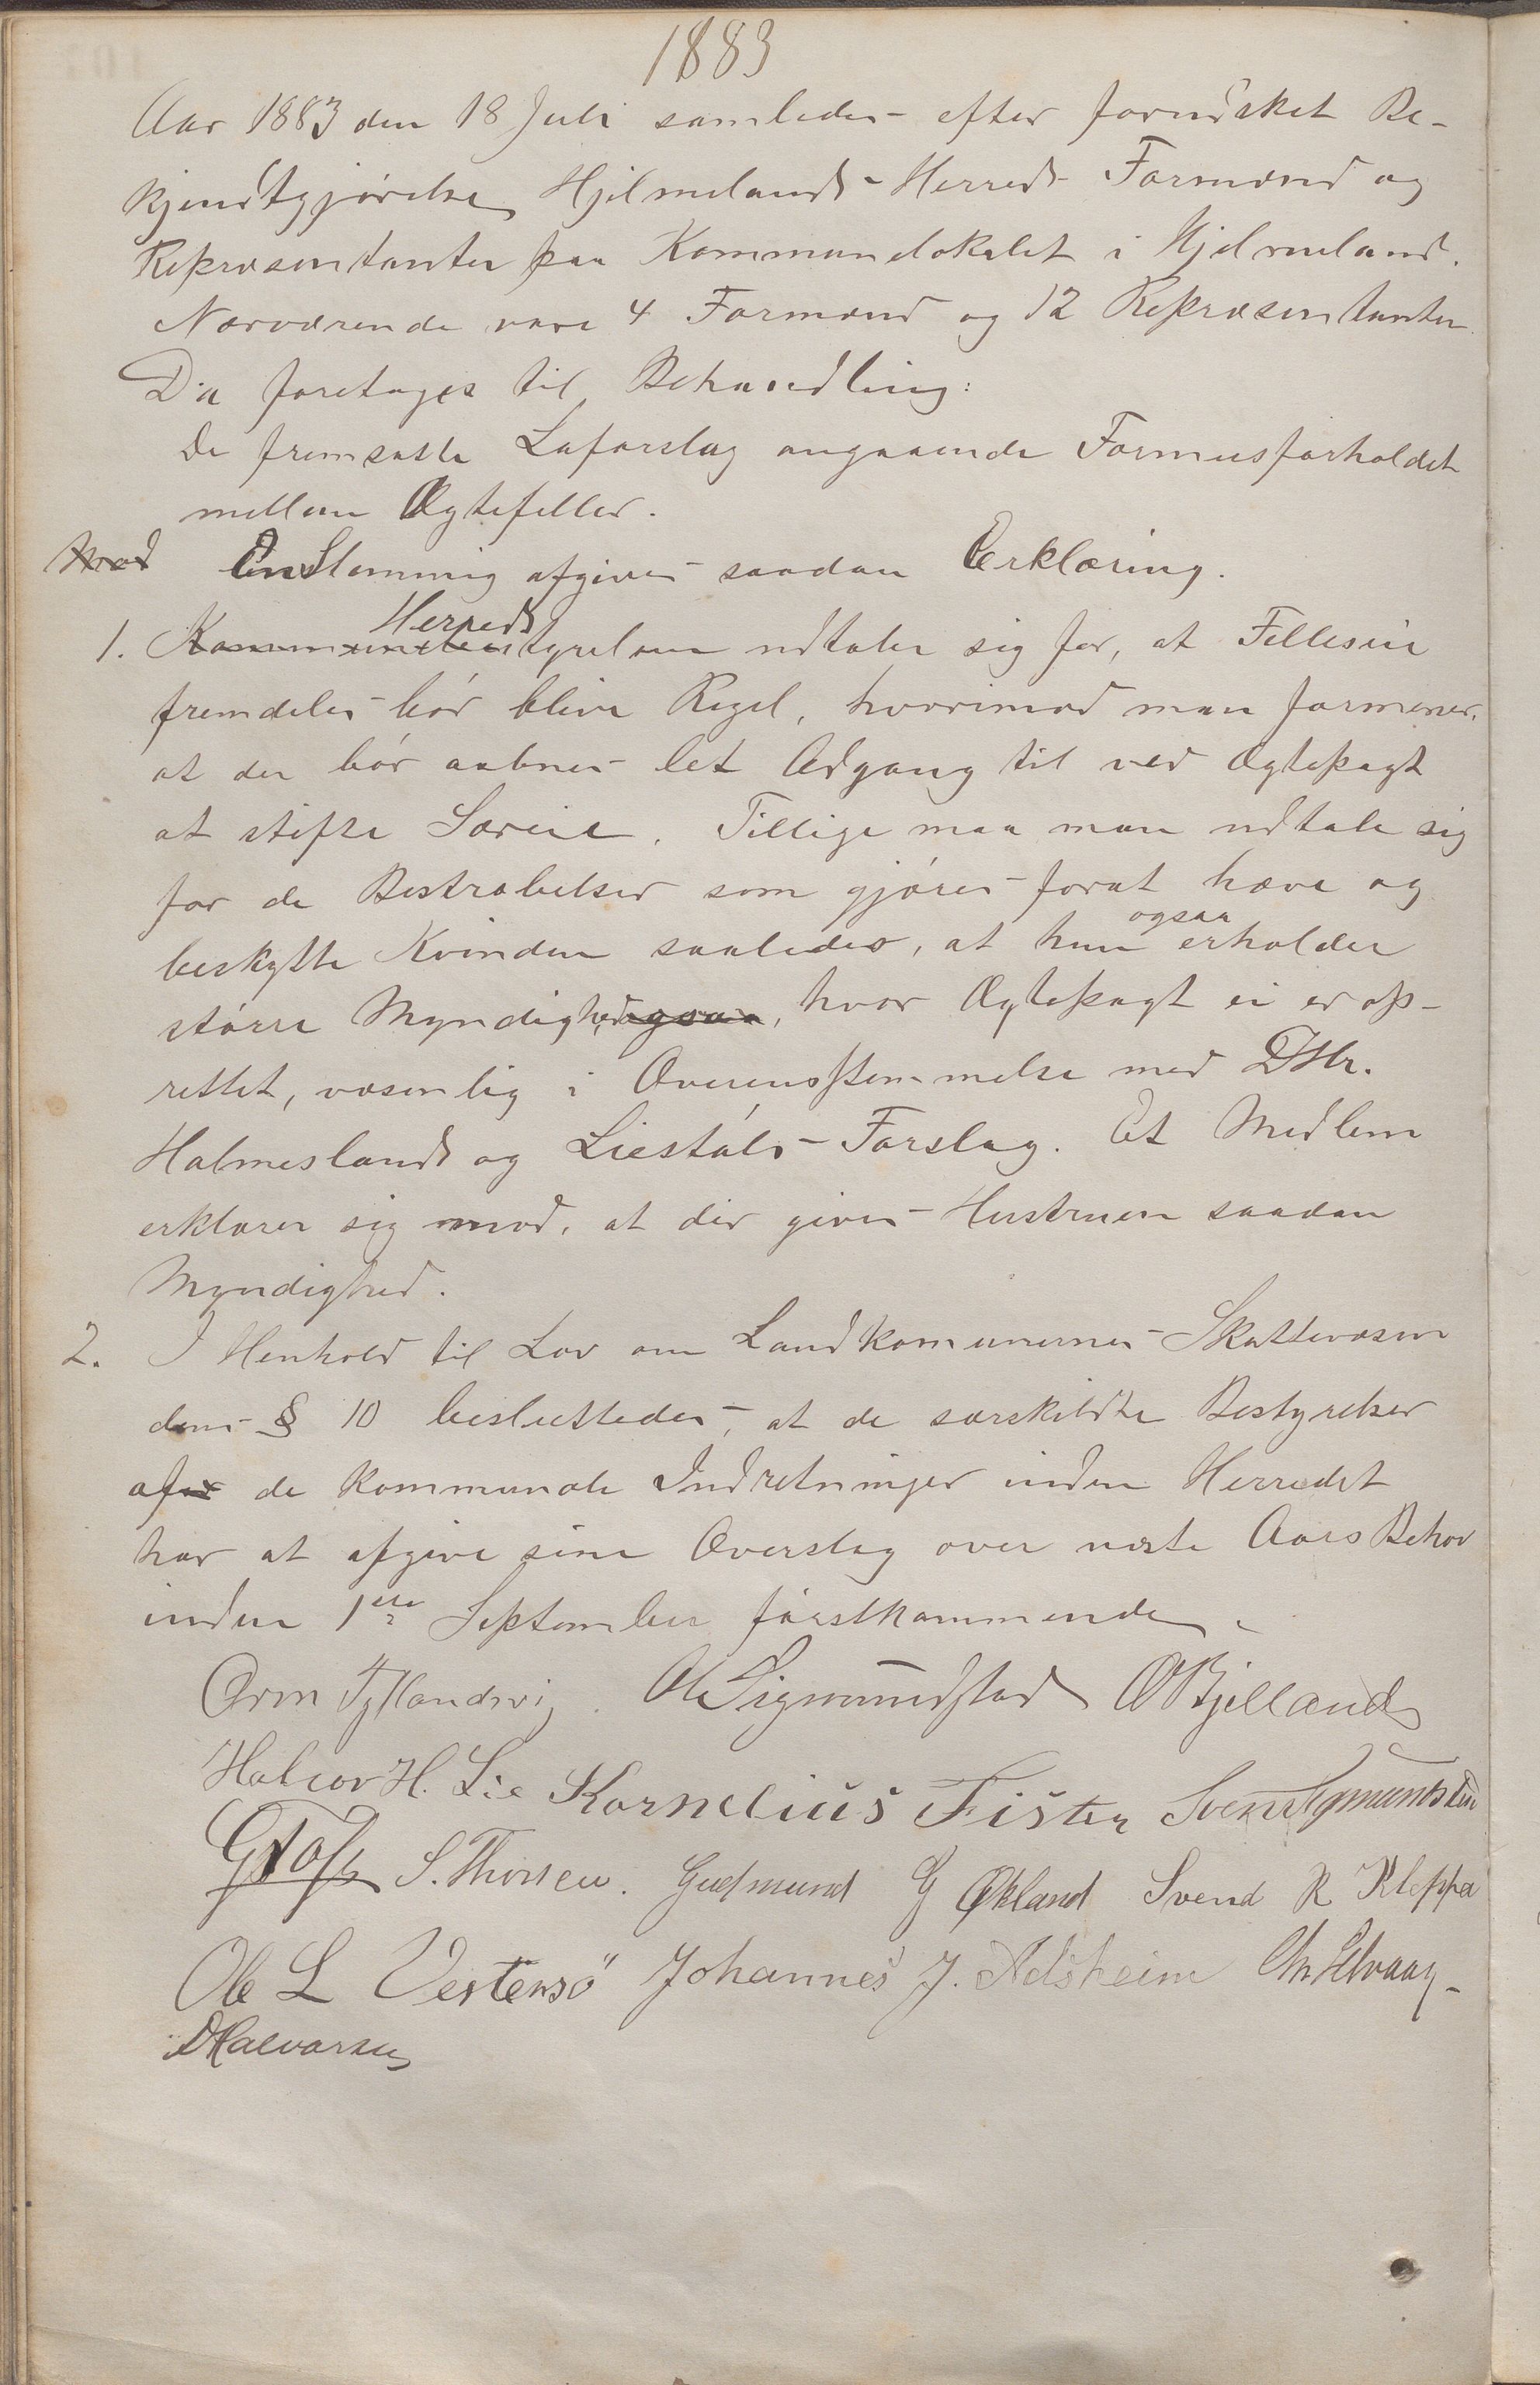 1883
Aar 1883 den 18 Juli samledes efter forudsket Be-
kjendtgjørelse Hjelmelands Herreds Formænd og
Repræsentanter paa Kommunelokalet i Hjelmeland.
Nærværende vare 4 Formænd og 12 Repræsentanter
Da foretages til Behandling:
De fremsatte Laforslag angaaende Formuesforholdet
mellem Ægtefeller.
Mod Enstemmig afgives saadan Erklæring.
Herreds
1. Kommunebestyrelsen udtaler sig for, at Felleseie
fremdeles bør blive Regel, hvorimod man formener,
at der bør aabnes let Adgang til ved Ægtepagt
at stifte Særeie. Tillige maa man udtale sig
for de Bestræbelser som gjøres forat hæve og
ogsaa
beskytte Kvinden saaledes, at hun erholder
større Myndighed ogsaa, hvor Ægtepagt ei er op-
rettet, væsenlig i Overensstemmelse med DHr.
Halmeslands og Liestøls Forslag. Et Medlem
erklærer sig mod, at der gives Hustruen saadan
Myndighed.
2. I Henhold til Lov om Landkomunernes Skattevæsen
dens § 10 besluttedes, at de særskildte Bestyrelser
af de kommunale Indretninger inden Herredet
har at afgive sine Overslag over næste Aars Behov
inden 1ste September førstkommende.
Orm Fyllandsvig. Ole Sigmundstad OBjelland
Halvor H. Lie Kornelius Fister Sven Sigmundstad
S. Thorsen. Gudmund G Økland Svend R Kleppa
Ole L Vestersö Johannes J. Adsheim Chr Elvaag
DHalvorsen